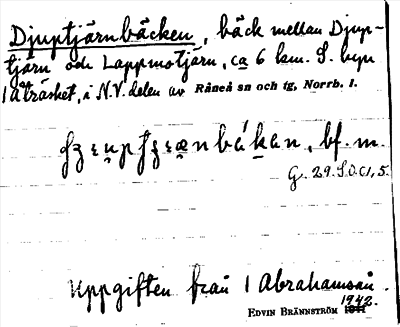 Djuptjärnbäcken, bäck mellan Djup-
tjärn och Lappmotjärn, ca 6 km. S. byn
Låträsket, i N.V. delen av Råneå sn och tg, Norrb. l.
bf. m.
G. 29. S.O. Cl, 5.
Uppgiften från I Abrahamsson.
EDVIN BRÄNNSTRÖM 1942.